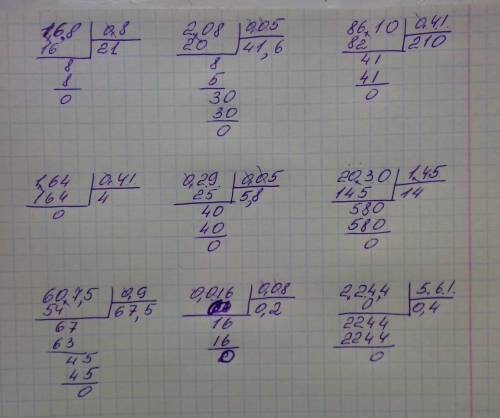 16,8 | 0,8
16 | 21
8
8
0
2,08 | 0,05
20 | 41,6
8
5
30
30
0
86,10 | 0,41
82 | 210
41
41
0
1,64 | 0,41
164 | 4
0
0,29 | 0,05
25 | 5,8
40
40
0
20,30 | 1,45
145 | 14
580
580
0
60,7,5 | 0,9
54 | 67,5
67
63
45
45
0
0,016 | 0,08
0,2
16
16
0
2,24,4 | 5,61
0 | 0,4
2244
2244
0